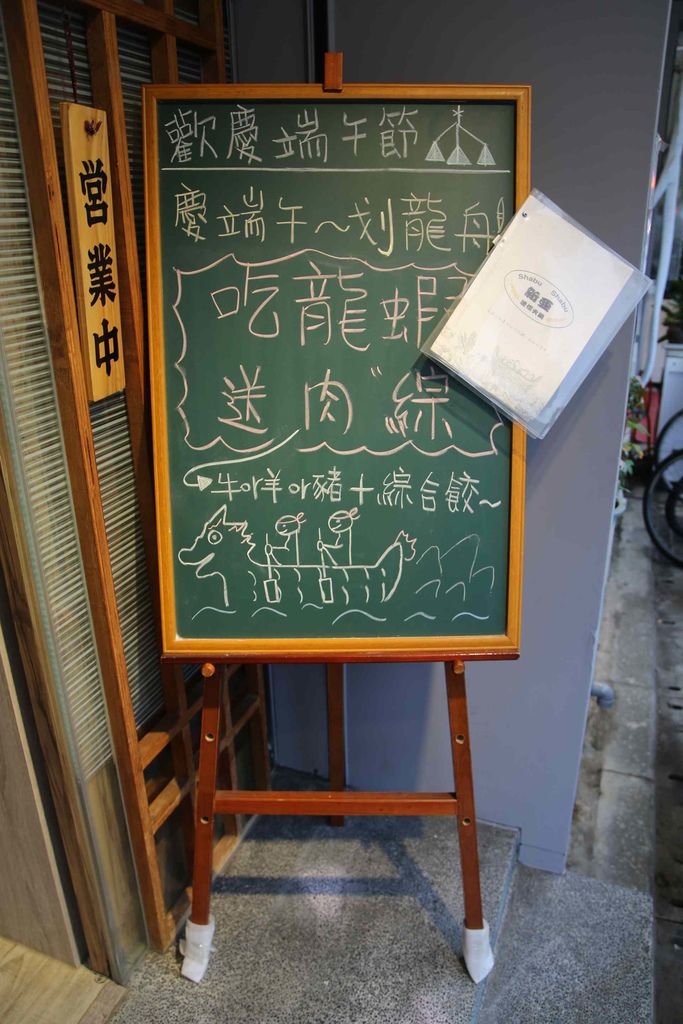 歡慶端午節
慶端午～划龍舟
吃龍蝦
送肉"綜
牛or羊or豬+綜合餃～
営業中
Shabu Shabu